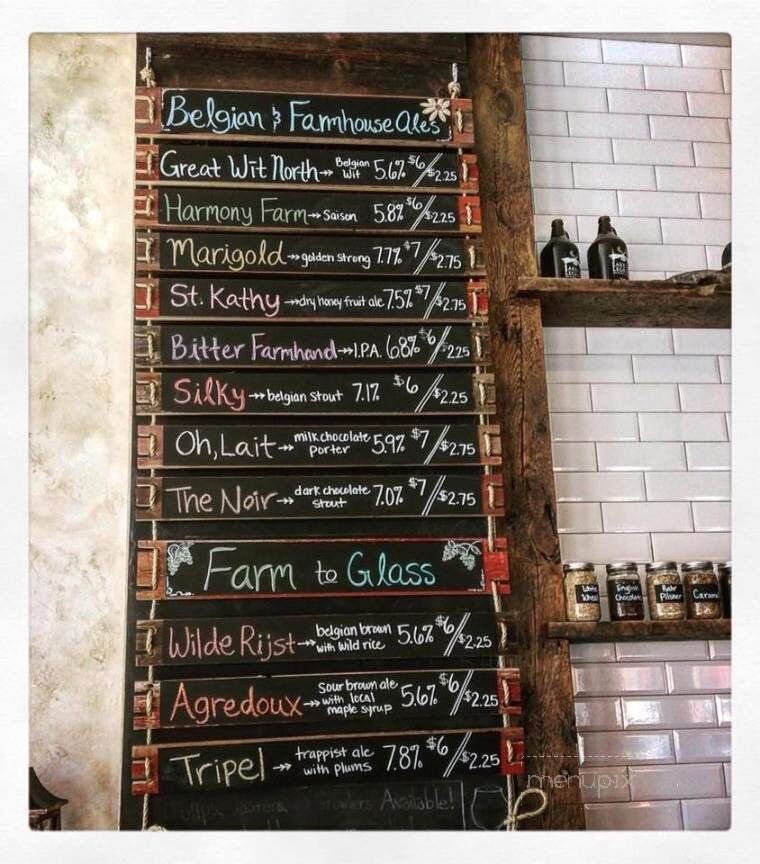 Belgian & Farmhouse Ales
Great Wit North →→ Belgian Wit 5.6% $6/$2.25
Harmony Farm →→ Saison 5.8% $6/$2.25
Marigold →→ golden strong 7.7% $7/$2.75
St. Kathy →→ dry honey fruit ale 7.5% $7/$2.75
Bitter Farmhand →→ I.P.A. 6.8% $6/$2.25
Silky →→ belgian stout 7.1% $6/$2.25
Oh, Lait →→ milk chocolate porter 5.9% $7/$2.75
The Noir →→ dark chocolate stout 7.0% $7/$2.75
Farm to Glass
Wilde Rijst →→ belgian brown with wild rice 5.6% $6/$2.25
Agredoux →→ Sour brown ale with local maple syrup 5.6% $6/$2.25
Tripel →→ trappist ale with plums 7.8% $6/$2.25
Available!
White Wheat
English Chocolate
Pilsner
Caram
menupix